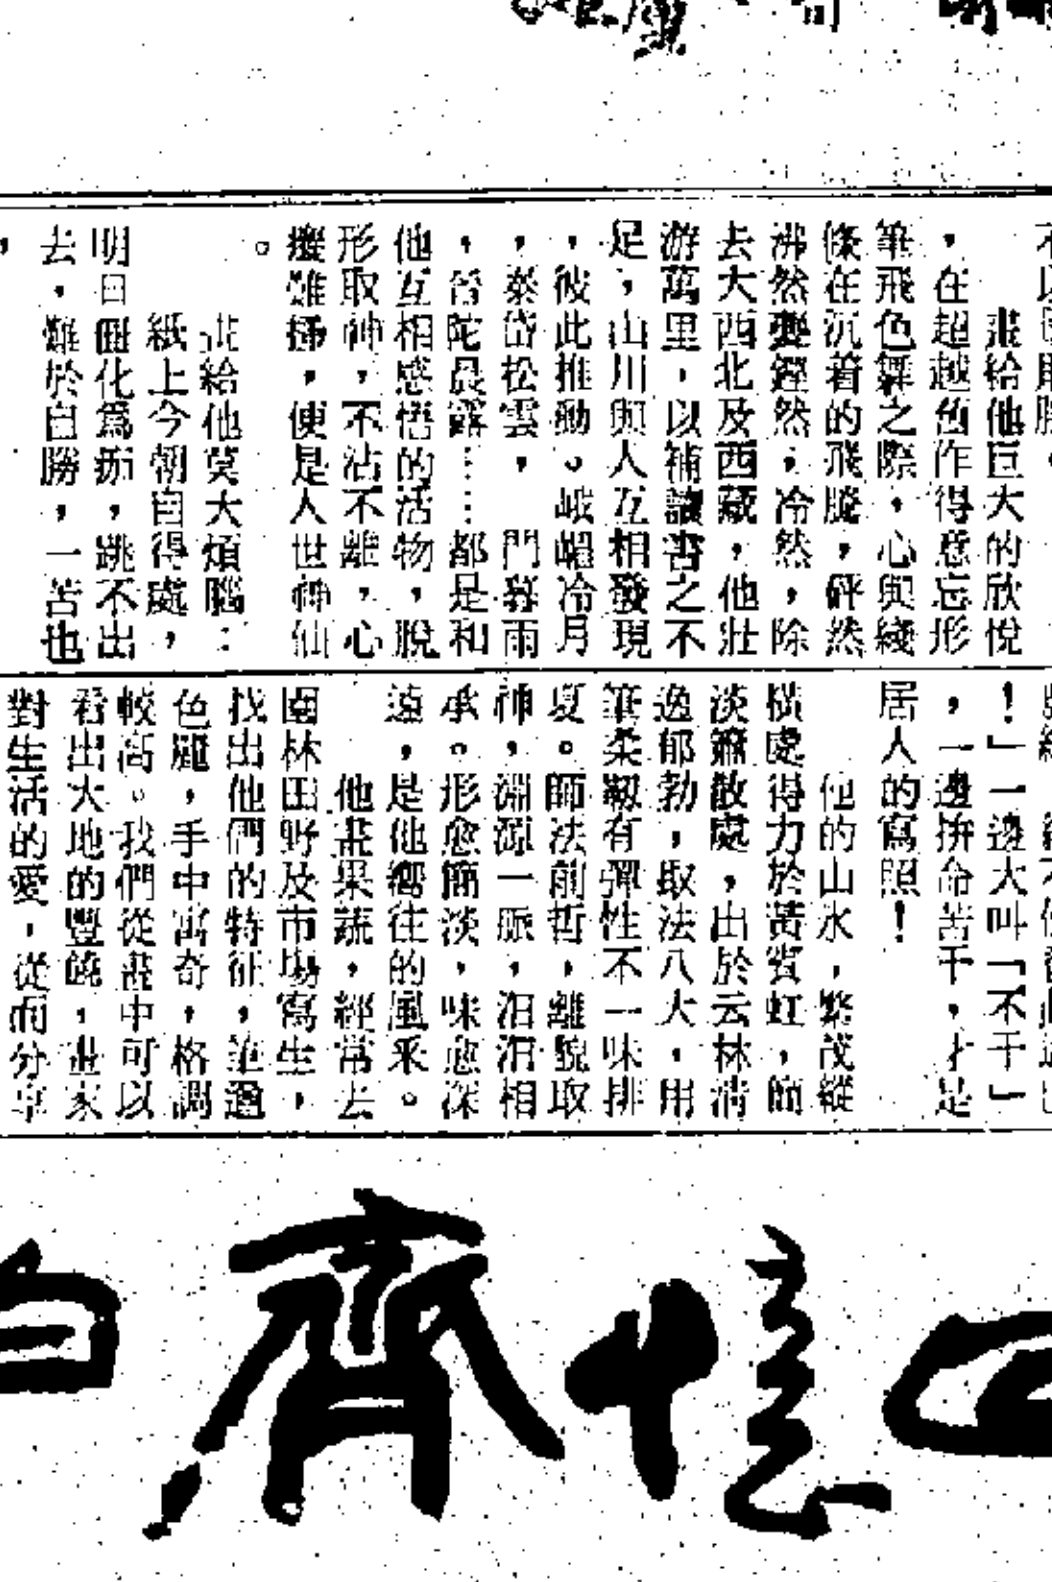 畫給他巨大的欣悅
，在超越舊作得意忘形
筆飛色舞之際，心與綫
條在沉着的飛騰，砰然
沸然鏗然，冷然，除
去大西北及西藏，他壯
游萬里，以補讀書之不
足，山川與人互相發現
，彼此推動。峨嵋冷月
，泰岱松雲，門暮雨
，普陀晨露……都是和
他互相感悟的活物，脫
形取神，不沾不離，心
癢難搔，便是人世神仙
。
畫給他莫大煩腦：
紙上今朝自得處，
明日僵化爲茆，跳不出
去，難於自勝，一苦也
，
！」一邊大叫「不干」
，一邊拚命苦干，才是
居人的寫照！
他的山水，繁茂縱
橫處得力於黃賓虹，簡
淡簫散處，出於云林清
逸郁勃，取法八大，用
筆柔韌有彈性不一味排
夏。師法前哲，離貌取
神，淵源一脈，汨汨相
承。形愈簡淡，味愈深
遠，是他嚮往的風釆。
他畫果蔬，經常去
園林田野及市場寫生，
找出他們的特征，筆適
色麗，手中寓奇，格調
較高。我們從畫中可以
看出大地的豐饒，畫家
對生活的愛，從而分享
回憶齊白